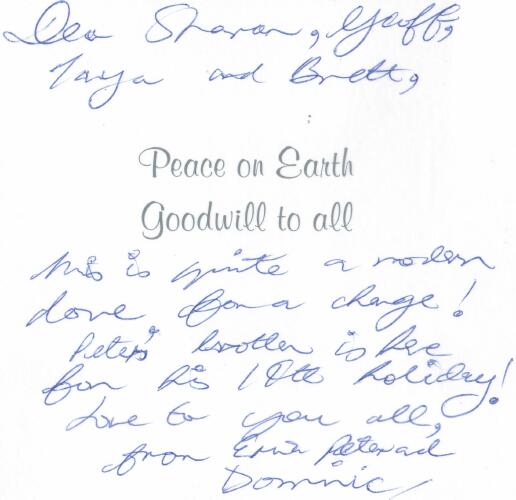 Dear Sharon, Geoff,
Tanya and Brett,
Peace on Earth
Goodwill to all
this is quite a modern
dove for a change!
Peter's brother is here
for his 10th holiday!
Love to you all,
from Erwin Peter and
Dominic